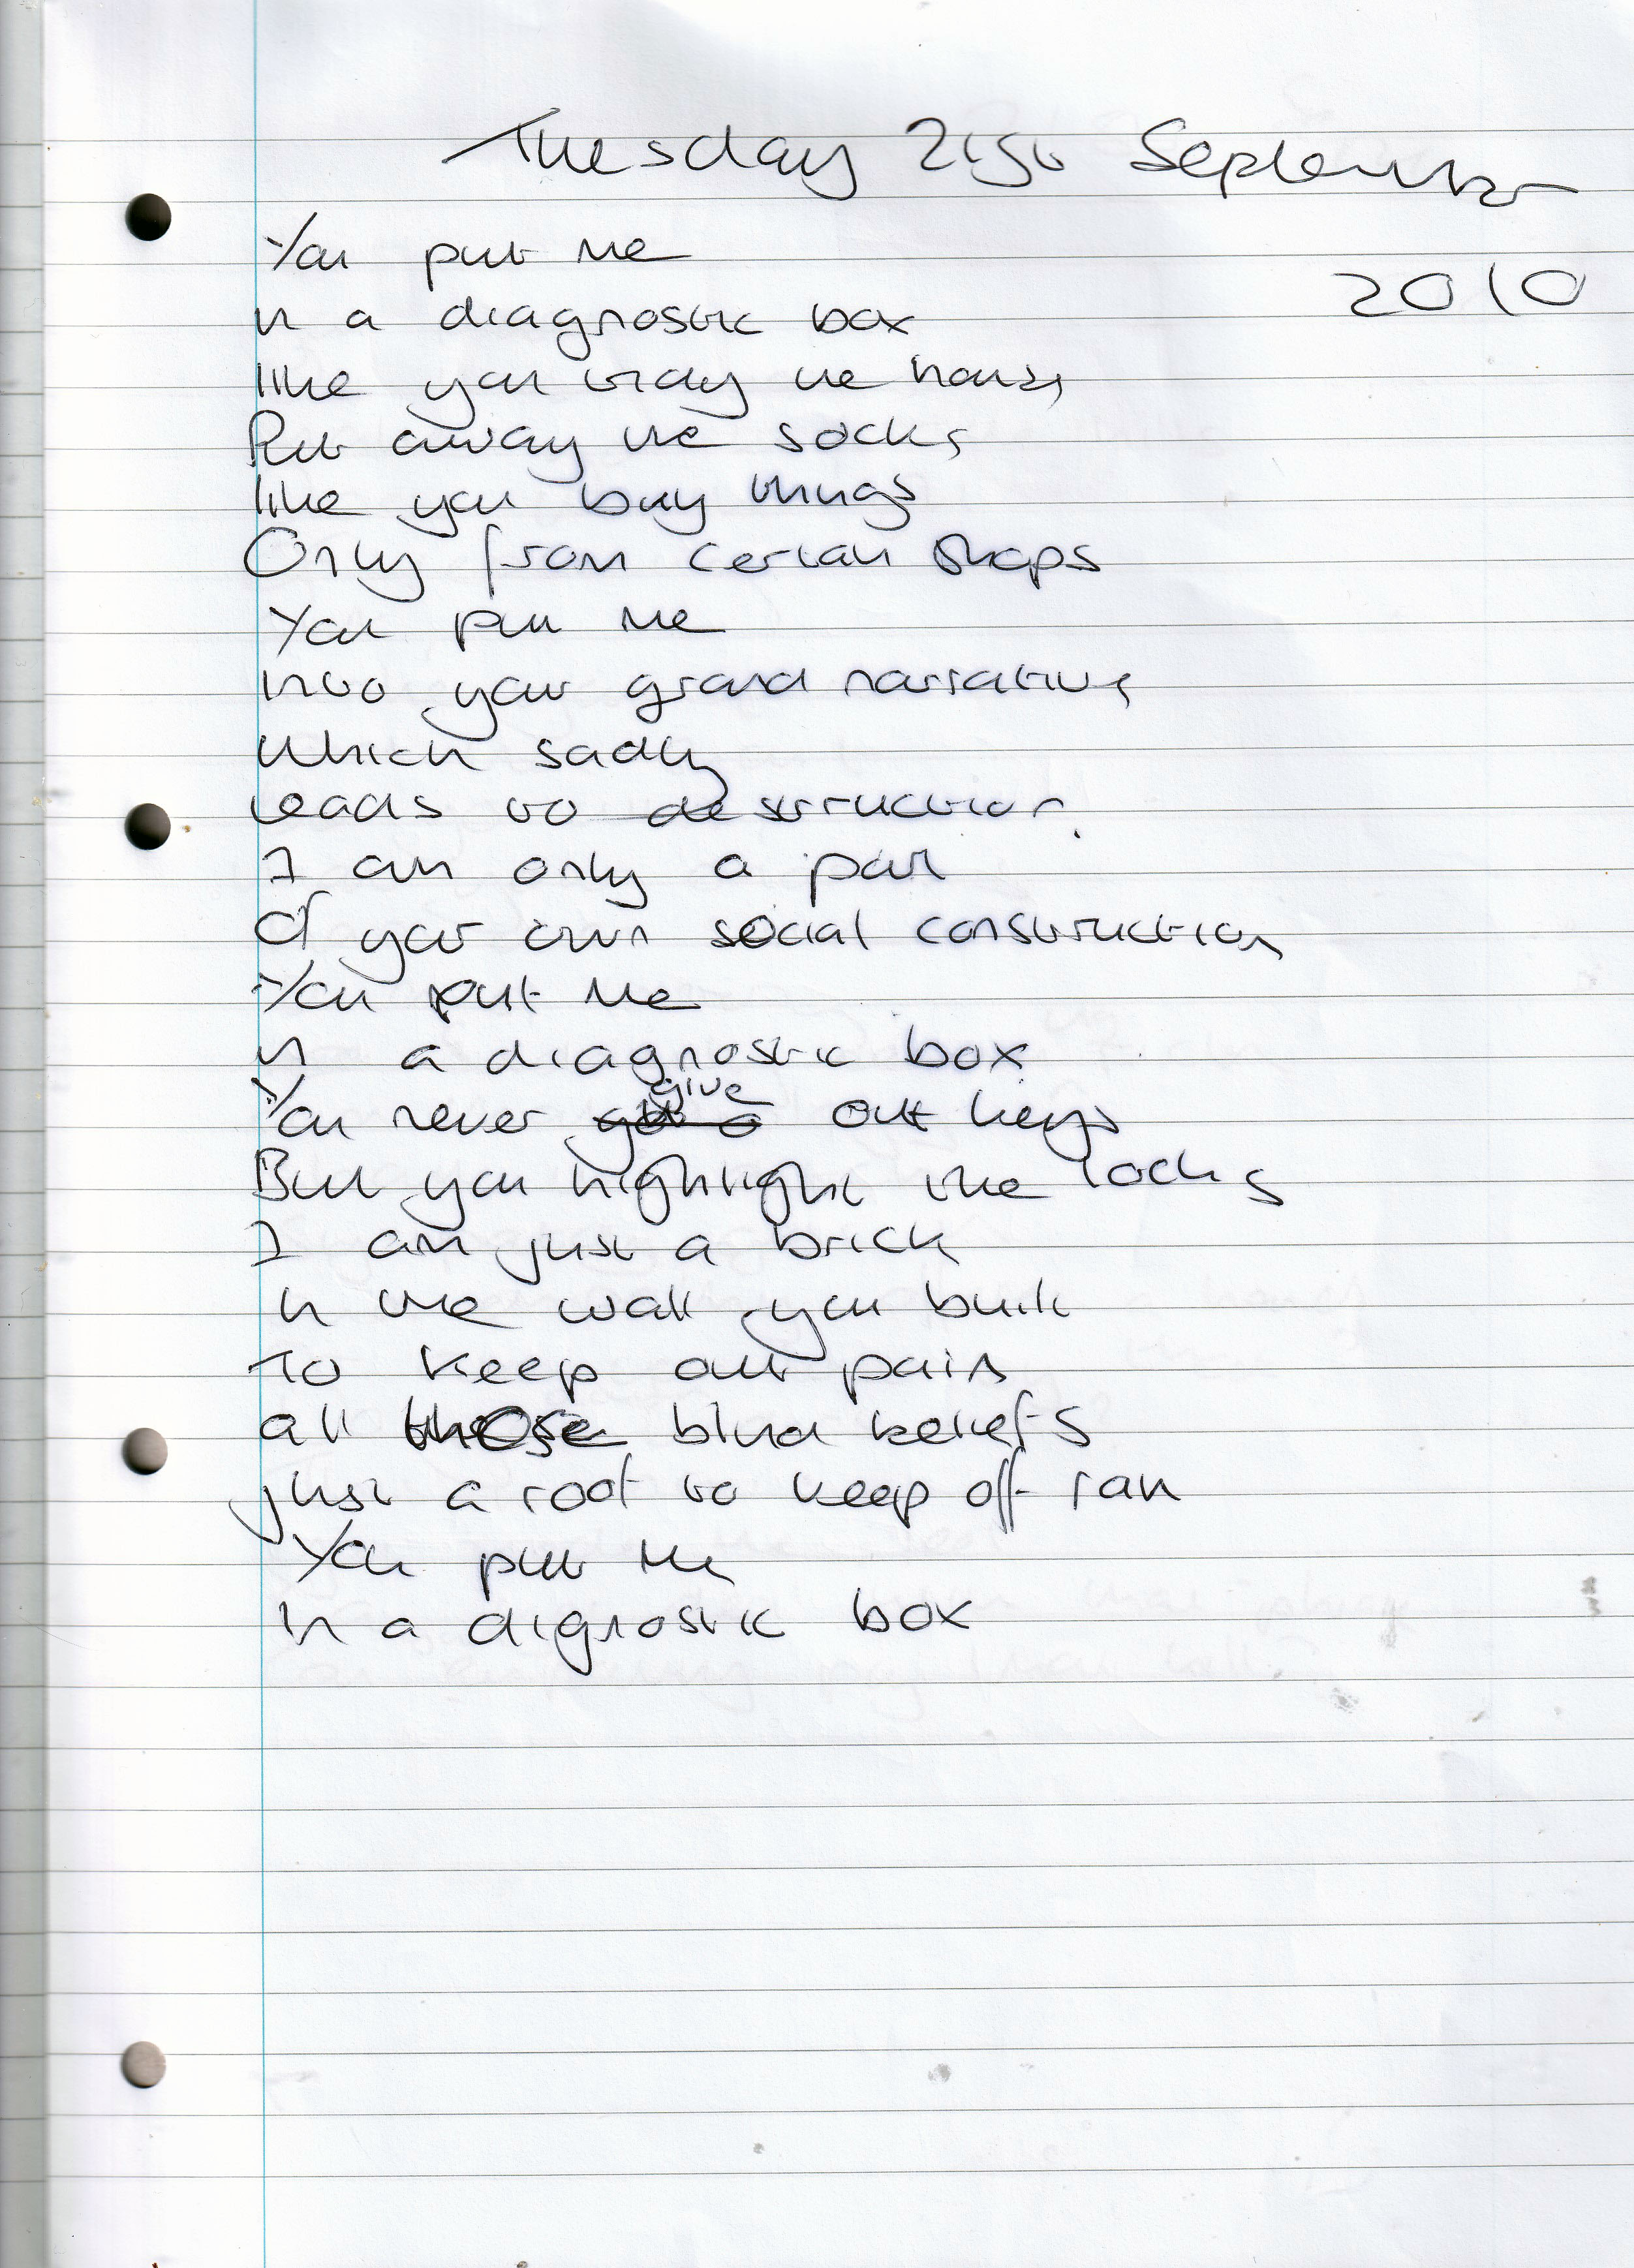 Tuesday 21st September
2010
You put me
in a diagnostic box
like you tidy the house,
Put away the socks
like you buy things
Only from certain shops
You put me
into your grand narrative
Which sadly
leads to destruction.
I am only a part
Of your own social construction
You put me
in a diagnostic box
You never give out keys
But you highlight the locks
I am just a brick
in the wall you built
To keep out pain
all those blind beliefs
just a roof to keep off rain
You put me
In a dignostic box